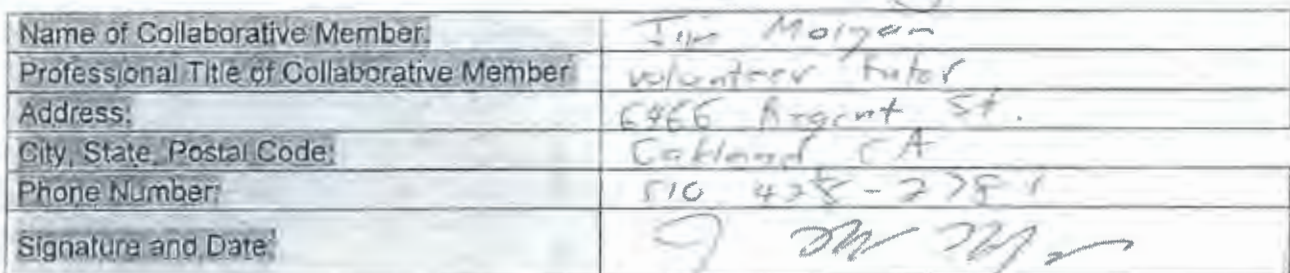 Name of Collaborative Member: Jim Morgan
Professional Title of Collaborative Member: volunteer tutor
Address: St.
City, State, Postal Code: Oakland CA
Phone Number: 510 428-2781
Signature and Date: